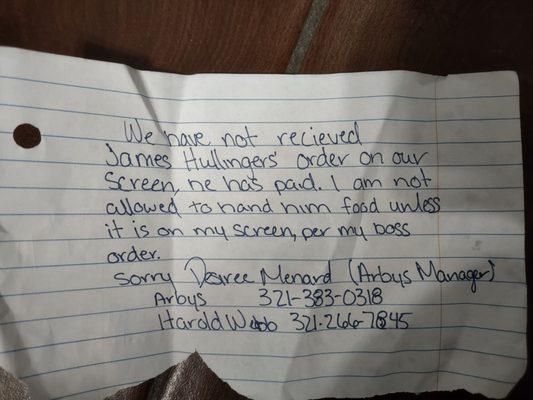 We have not recieved
James Hullingers' order on our
screen, he has paid. I am not
allowed to hand him food unless
it is on my screen, per my boss
order.
Sorry Desiree Menard (Arbys Manager)
Arbys 321-383-0318
Harold Webb 321-266-7845